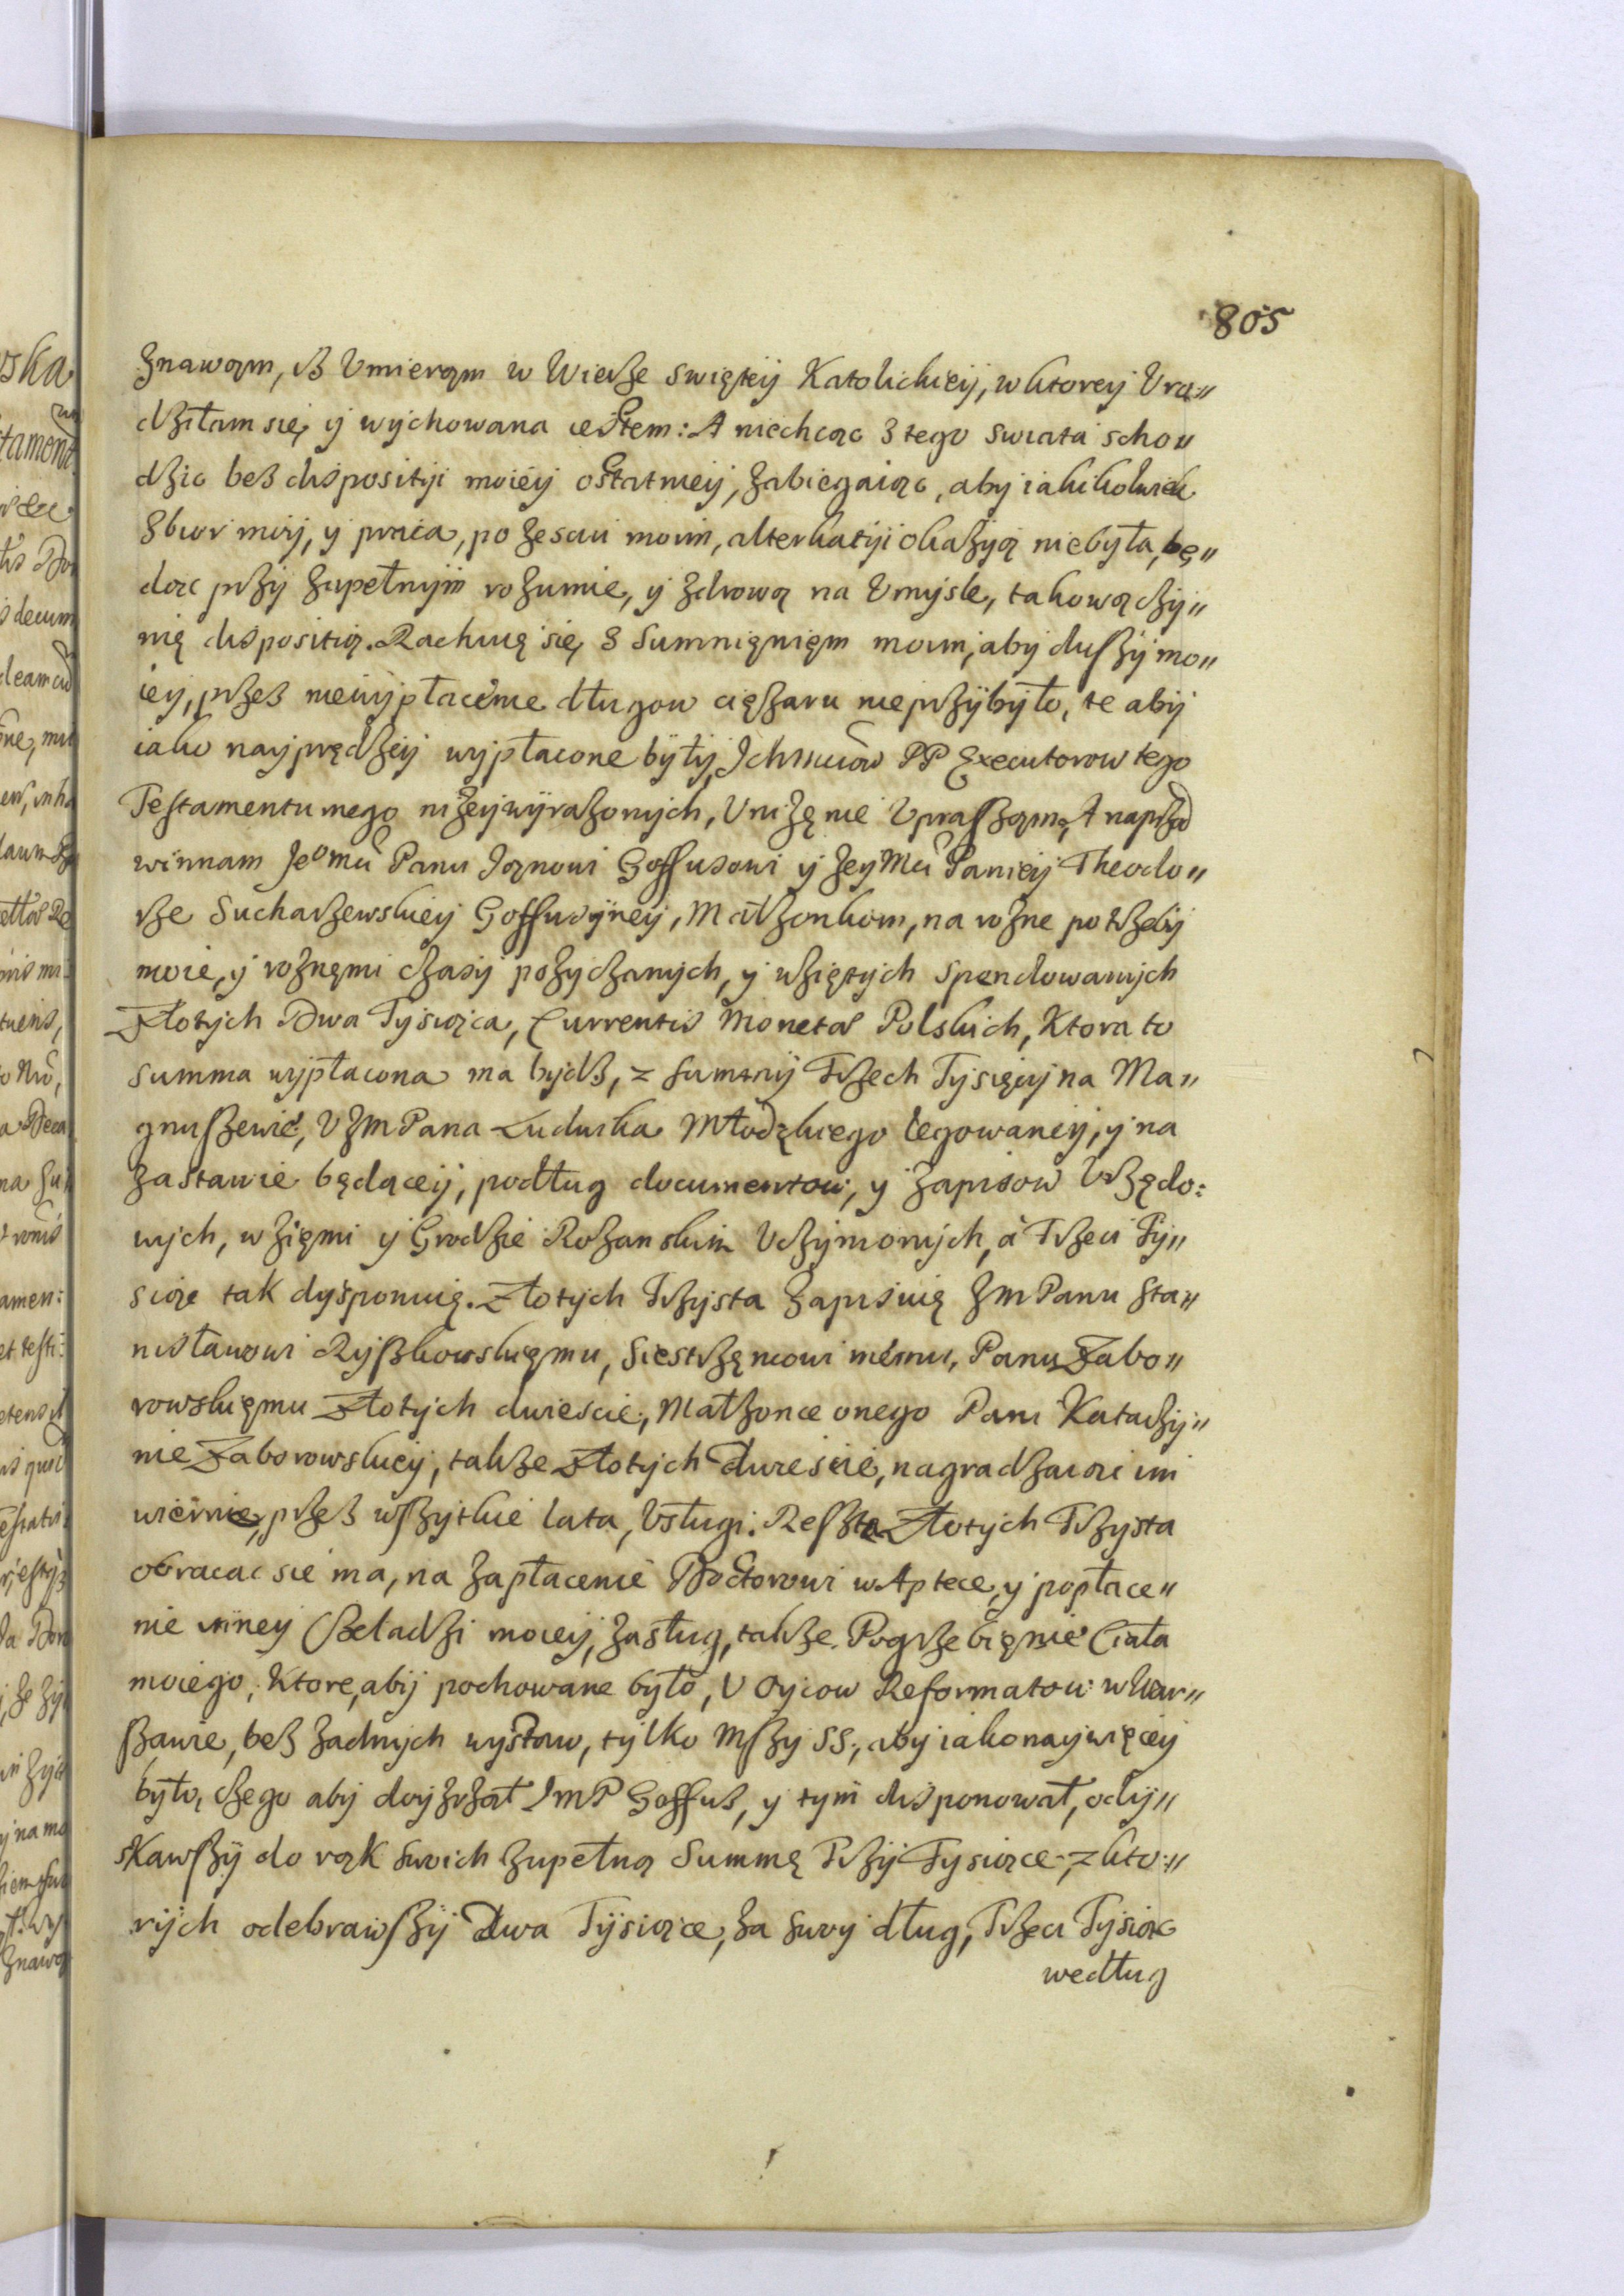 805
znawąm, isz Vmierąm w Wierze swiętey Katolickiey, w ktorey Vro„
dziłam się, y wychowana iestem: A niechcąc z tego swiata scho„
dzic bez dispositiji moiey ostatniey, zabiegaiąc, aby iakikolwiek
zbior moy, y praca, po ześciu moim, alterkatiji okazyą niebyła, bę„
dąc przy zupełnym rozumie, y zdrową na Vmysle, takową czy„
nię dispositią. Rachuię się, z Sumnięnięm moim, aby duszy mo„
iey, przez niewypłacenie długow ciężaru nieprzybyło, te aby
iako nayprędzey wypłacone były, Ichmciow PP Executorow tego
Testamentu mego niżey wyrażonych, Vniżęnie Vprasząm, A naprzod
winnam Jeomu Panu Janowi Goffusowi y Jeymci Paniey Theodo„
rze Sucharzewskiey Goffusyney, Małżonkom, na rożne potrzeby
moie, y rożnęmi czasy pożyczanych, y wziętych spendowanych
Złotych Dwa Tysiąca, Currentis Moneta Polskich, Ktora to
summa wypłacona ma bydz, z summy Trzech Tysięcy na Ma„
gnuszewie, V JM Pana Ludwika Młodzkiego legowaney, y na
zastawie będącey, podług documentow, y zapisow Vrzędo:
wych, w Zięmi y Grodzie Rożanskim Vczynionych, a Trzeci Ty„
siąc tak dysponuię. Złotych Trzysta zapisuię JM Panu Sta„
nisławowi Ryszkowskięmu, Siestrzęncowi memu, Panu Zabo„
rowskięmu Złotych dwiescie, Małżonce onego Pani Katarzy„
nie Zaborowskiey, także Złotych dwiescie, nagradzaiąc im
wiernie, przez wszytkie lata, Vsługi. Reszta Złotych Trzysta
obracac sie ma, na zapłacenie Doctorowi w Aptece, y popłace„
nie inney Czeladzi moiey, zasług, także Pogrzebięnie Ciała
moiego, Ktore, aby pochowane było, V Oycow Reformatow w War„
szawie, bez żadnych wystaw, tylko Mszy SS, aby iako naywięcey
było, czego aby doyzrzał JmP Goffus, y tym disponował, ody„
skawszy do rąk swoich zupełną Summę Trzy Tysiące, z kto„
rych odebrawszy Dwa Tysiące, za swoy dług, Trzeci Tysiąc
według